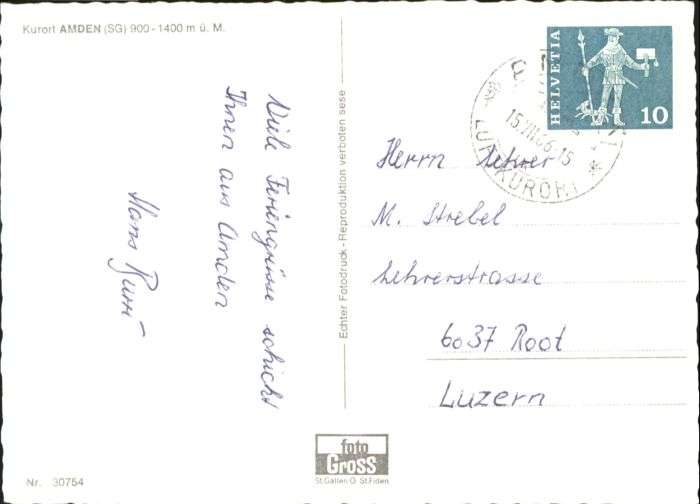 Kurort AMDEN (SG) 900-1400 m ü. M.
HELVETIA
10
15.VII.66.15
LUFTKURORT
Viele Feriengrüsse schickt
Ihnen aus Amden
Hans Burri
Echter Fotodruck - Reproduktion verboten sese
Herrn Lehrer
M. Strebel
Lehrerstrasse
6037 Root
Luzern
foto
GROSS
St.Gallen O. St.Fiden
Nr. 30754